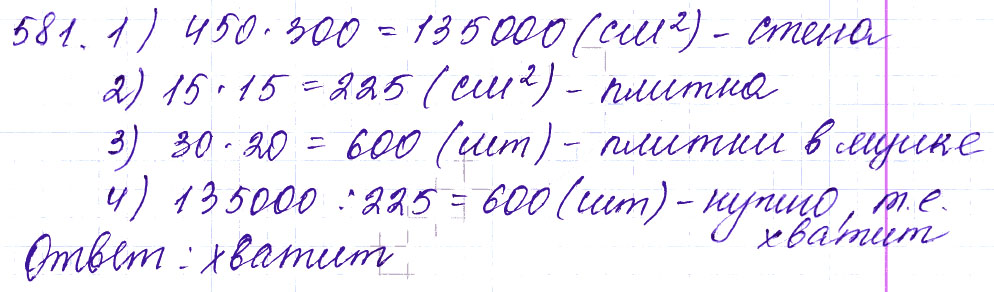 581. 1) 450·300 = 135000 (см²) - стена
2) 15·15 = 225 (см²) - плитка
3) 30·20 = 600 (шт) - плитки в ящике
4) 135000 : 225 = 600 (шт) - нужно, т.е.
хватит
Ответ: хватит